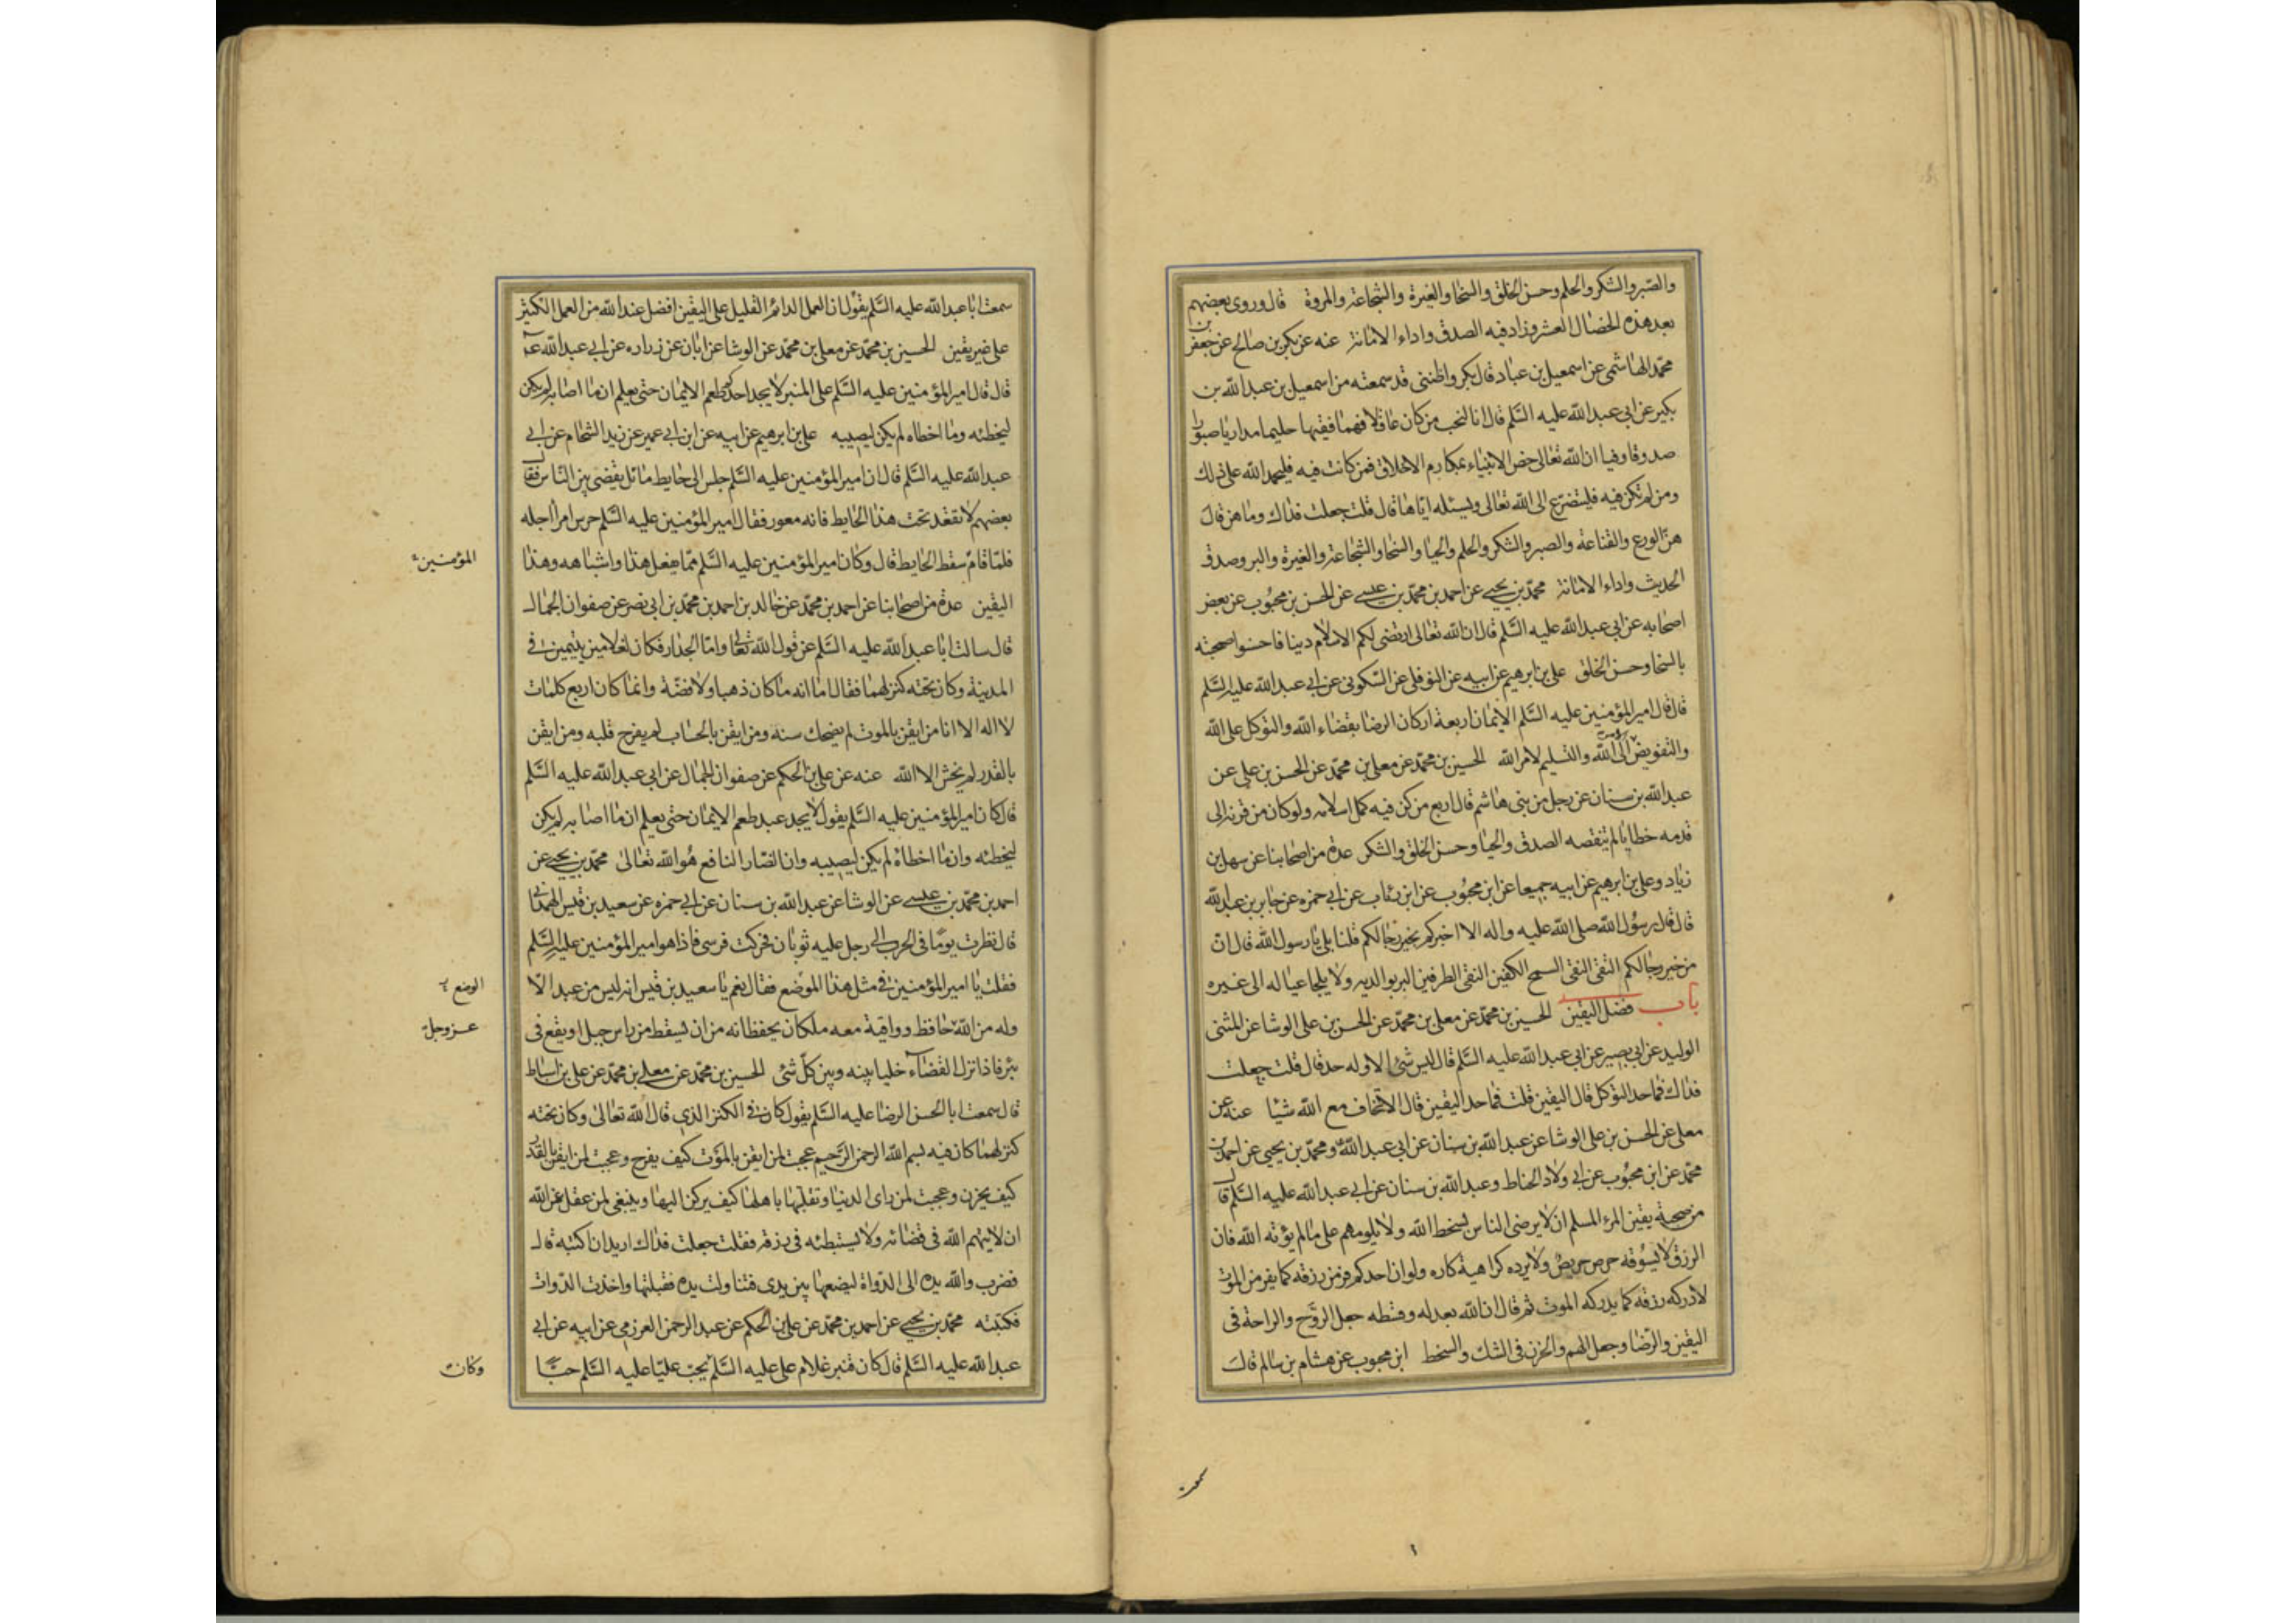 والصبر والشكر والحلم وحسن الخلق والسخا والغيرة والشجاعة والمروة قال وروى بعضهم
بعد هذه الخصال العشر وزاد فيه الصدق واداء الامانة عنه عن بكر بن صالح عن جعفر بن
محمد الهاشمى عن اسمعيل بن عباد قال بكر واظننى قد سمعته من اسمعيل بن عبد الله بن
بكير عن ابى عبد الله عليه السلم قال انا لنحب من كان عاقلا فهما فقيها حليما مداريا صبورا
صدوقا وفيا ان الله تعالى خص الانبياء بمكارم الاخلاق فمن كانت فيه فليحمد الله على ذلك
ومن لم تكن فيه فليتضرع الى الله تعالى وليسئله اياها قال قلت جعلت فداك وما هن قال
هن الورع والقناعة والصبر والشكر والحلم والحيا والسخا والشجاعة والغيرة والبر وصدق
الحديث واداء الامانة محمد بن يحيى عن احمد بن محمد بن عيسى عن الحسن بن محبوب عن بعض
اصحابه عن ابى عبد الله عليه السلم قال ان الله تعالى ارتضى لكم الاسلام دينا فاحسنوا صحبته
بالسخا وحسن الخلق على بن ابرهيم عن ابيه عن النوفلى عن السكونى عن ابى عبد الله عليه السلم
قال قال امير المؤمنين عليه السلم الايمان اربعة اركان الرضا بقضاء الله والتوكل على الله
والتفويض الى الله والتسليم لامر الله الحسين بن محمد عن معلى بن محمد عن الحسن بن على عن
عبد الله بن سنان عن رجل من بنى هاشم قال اربع من كن فيه كمل اسلامه ولو كان من قرنه الى
قدمه خطايا لم تنقصه الصدق والحيا وحسن الخلق والشكر عدة من اصحابنا عن سهل بن
زياد وعلى بن ابرهيم عن ابيه جميعا عن ابن محبوب عن ابن رئاب عن ابى حمزه عن جابر بن عبد الله
قال قال رسول الله صلى الله عليه واله الا اخبركم بخير رجالكم قلنا بلى يا رسول الله قال ان
من خير رجالكم التقى النقى السمح الكفين النقى الطرفين البر بوالديه ولا يلجا عياله الى غيره
باب فضل اليقين الحسين بن محمد عن معلى بن محمد عن الحسن بن على الوشا عن المثنى
الوليد عن ابى بصير عن ابى عبد الله عليه السلم قال ليس شئ الا وله حد قال قلت جعلت
فداك فما حد التوكل قال اليقين قلت فما حد اليقين قال الا تخاف مع الله شيا عنه عن
معلى عن الحسن بن على الوشا عن عبد الله بن سنان عن ابى عبد الله ومحمد بن يحيى عن احمد بن
محمد عن ابن محبوب عن ابى ولاد الحناط وعبد الله بن سنان عن ابى عبد الله عليه السلم قال
من صحة يقين المرء المسلم ان لا يرضى الناس بسخط الله ولا يلومهم على ما لم يؤته الله فان
الرزق لا يسوقه حرص حريص ولا يرده كراهية كاره ولو ان احدكم فر من رزقه كما يفر من الموت
لادركه رزقه كما يدركه الموت ثم قال ان الله بعدله وقسطه جعل الروح والراحة فى
اليقين والرضا وجعل الهم والحزن فى الشك والسخط ابن محبوب عن هشام بن سالم قال
سمعت
سمعت ابا عبد الله عليه السلم يقول ان العمل الدائم القليل على اليقين افضل عند الله من العمل الكثير
على غير يقين الحسين بن محمد عن معلى بن محمد عن الوشا عن ابان عن زراره عن ابى عبد الله ع
قال قال امير المؤمنين عليه السلم على المنبر لا يجد احدكم طعم الايمان حتى يعلم ان ما اصابه لم يكن
ليخطئه وما اخطاه لم يكن ليصيبه على بن ابرهيم عن ابيه عن ابن ابى عمير عن زيد الشحام عن ابى
عبد الله عليه السلم قال ان امير المؤمنين عليه السلم جلس الى حايط مائل يقضى بين الناس فقال
بعضهم لا تقعد تحت هذا الحايط فانه معور فقال امير المؤمنين عليه السلم حرس امرأ اجله
فلما قام سقط الحايط قال وكان امير المؤمنين عليه السلم مما يفعل هذا واشباهه وهذا
المؤمنين
اليقين عدة من اصحابنا عن احمد بن محمد عن خالد بن احمد بن محمد بن ابى نصر عن صفوان الجمال
قال سالت ابا عبد الله عليه السلم عن قول الله تعالى واما الجدار فكان لغلامين يتيمين فى
المدينة وكان تحته كنز لهما فقال اما انه ما كان ذهبا ولا فضة وانما كان اربع كلمات
لا اله الا انا من ايقن بالموت لم يضحك سنه ومن ايقن بالحساب لم يفرح قلبه ومن ايقن
بالقدر لم يخش الا الله عنه عن على بن الحكم عن صفوان الجمال عن ابى عبد الله عليه السلم
قال كان امير المؤمنين عليه السلم يقول لا يجد عبد طعم الايمان حتى يعلم ان ما اصابه لم يكن
ليخطئه وان ما اخطاه لم يكن ليصيبه وان الضار النافع هو الله تعالى محمد بن يحيى عن
احمد بن محمد بن عيسى عن الوشا عن عبد الله بن سنان عن ابى حمزه عن سعيد بن قيس الهمدانى
قال نظرت يوما فى الحرب الى رجل عليه ثوبان فحركت فرسى فاذا هو امير المؤمنين عليه السلم
فقلت يا امير المؤمنين فى مثل هذا الموضع فقال نعم يا سعيد بن قيس انه ليس من عبد الا
الوضع
وله من الله حافظ وواقية معه ملكان يحفظانه من ان يسقط من راس جبل او يقع فى
عز وجل
بئر فاذا نزل القضاء خليا بينه وبين كل شئ الحسين بن محمد عن معلى بن محمد عن على بن اسباط
قال سمعت ابا الحسن الرضا عليه السلم يقول كان فى الكنز الذى قال الله تعالى وكان تحته
كنز لهما كان فيه بسم الله الرحمن الرحيم عجبت لمن ايقن بالموت كيف يفرح وعجبت لمن ايقن بالقدر
كيف يحزن وعجبت لمن راى الدنيا وتقلبها باهلها كيف يركن اليها وينبغى لمن عقل عن الله
ان لا يتهم الله فى قضائه ولا يستبطئه فى رزقه فقلت جعلت فداك اريد ان اكتبه قال
فضرب والله يده الى الدواة ليضعها بين يدى فتناولت يده فقبلتها واخذت الدوات
فكتبته محمد بن يحيى عن احمد بن محمد عن على بن الحكم عن عبد الرحمن العرزمى عن ابيه عن ابى
عبد الله عليه السلم قال كان قنبر غلام على عليه السلم يحب عليا عليه السلم حبا
وكان